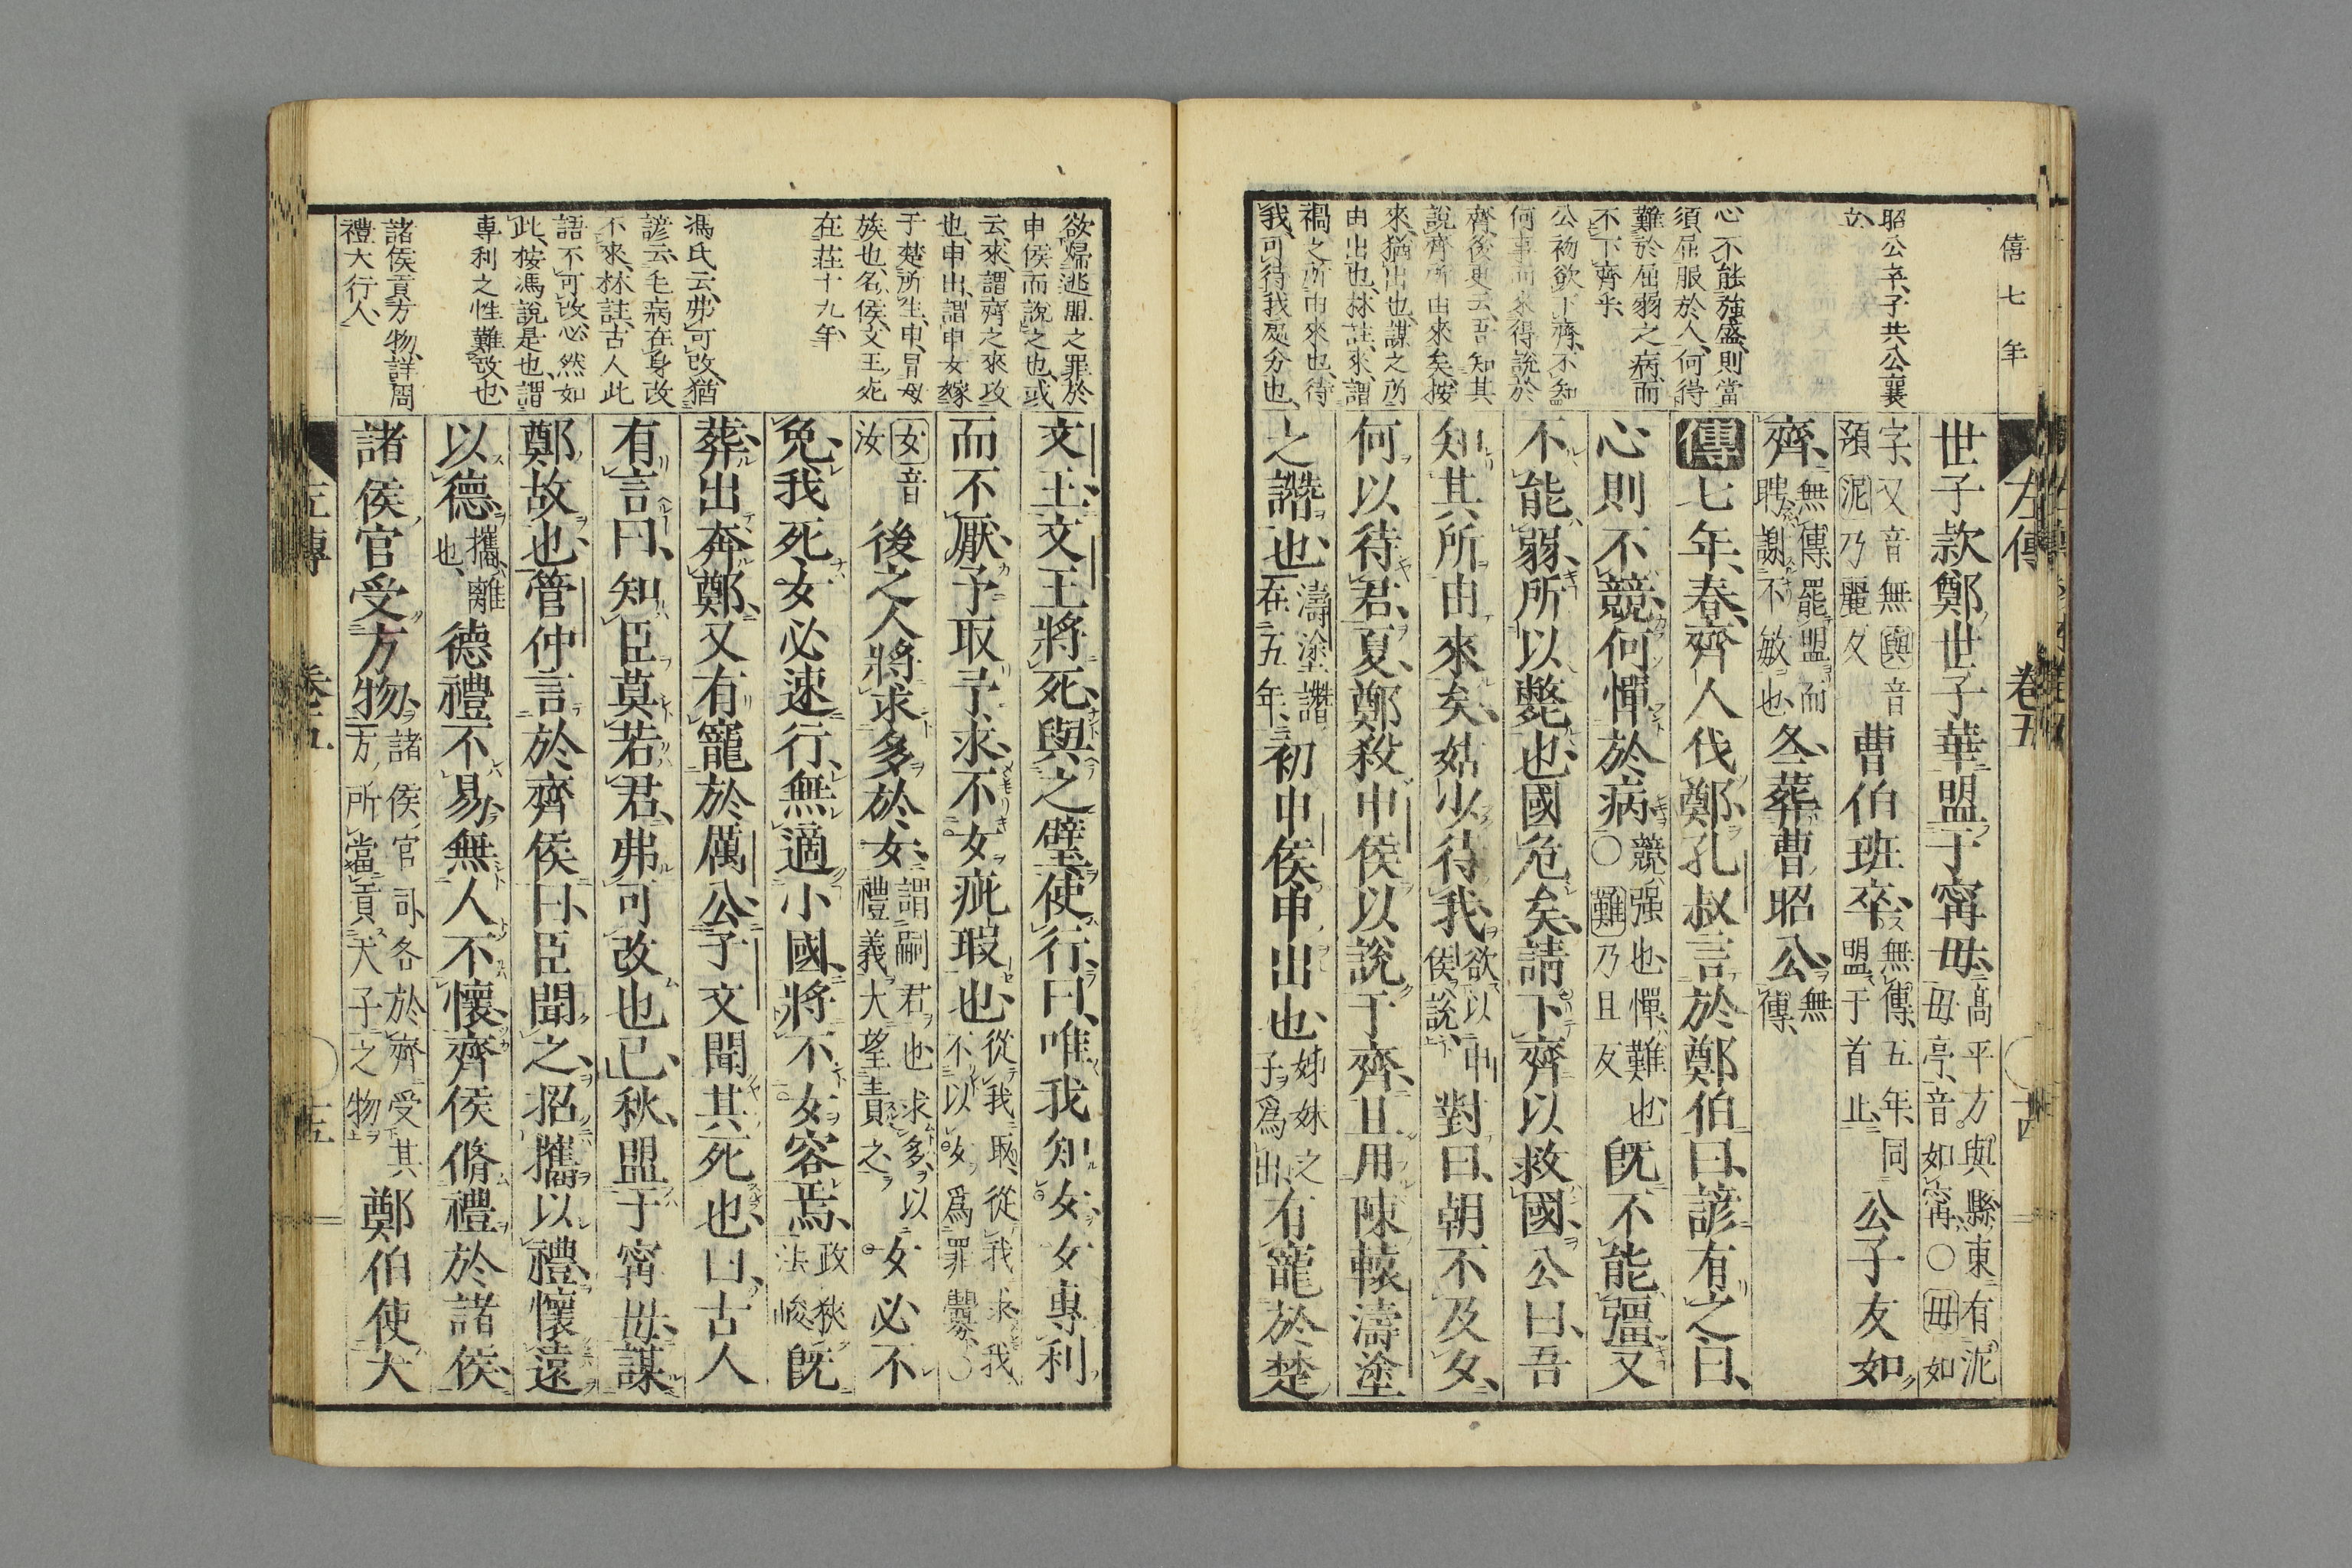 僖七年
昭公卒、子共公襄
立、
心不能強盛、則當
須屈服於人、何得
難於屈弱之病、而
不下齊乎、
公初欲下齊、不知
何事而求得説於
齊、後更云、吾知其
説齊所由來矣、按
來、猶出也、謀之所
由出也、林註、來、謂
禍之所由來也、待
我、可待我處分也、
左傳 卷五 十四
世子款鄭世子華盟于甯毋、高平方與縣東有泥
毋亭、音如甯、〇毋如
字、又音無與音
預泥乃麗反 曹伯班卒、無傳、五年、同
盟于首止、 公子友如
齊、無傳、罷盟而
聘、謝不敏也 冬、葬曹昭公、無
傳、
傳七年、春、齊人伐鄭、孔叔言於鄭伯曰、諺有之曰、
心則不競、何憚於病、競、强也、憚、難也
〇難乃且反 既不能彊又
不能弱、所以斃也、國危矣、請下齊以救國、公曰、吾
知其所由來矣、姑少待我、欲以申
侯説、 對曰、朝不及夕、
何以待君、夏、鄭殺申侯以説于齊、且用陳轅濤塗
之譖也、濤塗譖
在五年、 初申侯申出也、姊妹之
子爲出、 有寵於楚
欲歸逃盟之罪於
申侯而説之也、或
云、來、謂齊之來攻
也、申出、謂申女嫁
于楚所生、申、冒母
族也、名侯、文王死
在莊十九年、
馮氏云、弗可改、猶
諺云、毛病在身改
不來、林註、古人此
語不可改、必然如
此、按馮説是也、謂
專利之性難改也、
諸侯貢方物、詳周
禮大行人、
文王、文王將死、與之璧使行、曰、唯我知女、女專利
而不厭、予取予求、不女疵瑕也、從我取、從我求、我
不以女爲罪釁、〇
女音
汝 後之人將求多於女、謂嗣君也、求多、以
禮義大望責之、 女必不
免、我死、女必速行、無適小國、將不女容焉、政狹
法峻 既
葬、出奔鄭、又有寵於厲公、子文聞其死也、曰、古人
有言曰、知臣莫若君、弗可改也已、秋、盟于甯毋、謀
鄭故也、管仲言於齊侯曰、臣聞之、招攜以禮、懷遠
以德、攜、離
也、 德禮不易、無人不懷、齊侯脩禮於諸侯、
諸侯官受方物、諸侯官司、各於齊受其
方所當貢天子之物 鄭伯使大
左傳 卷五 十五